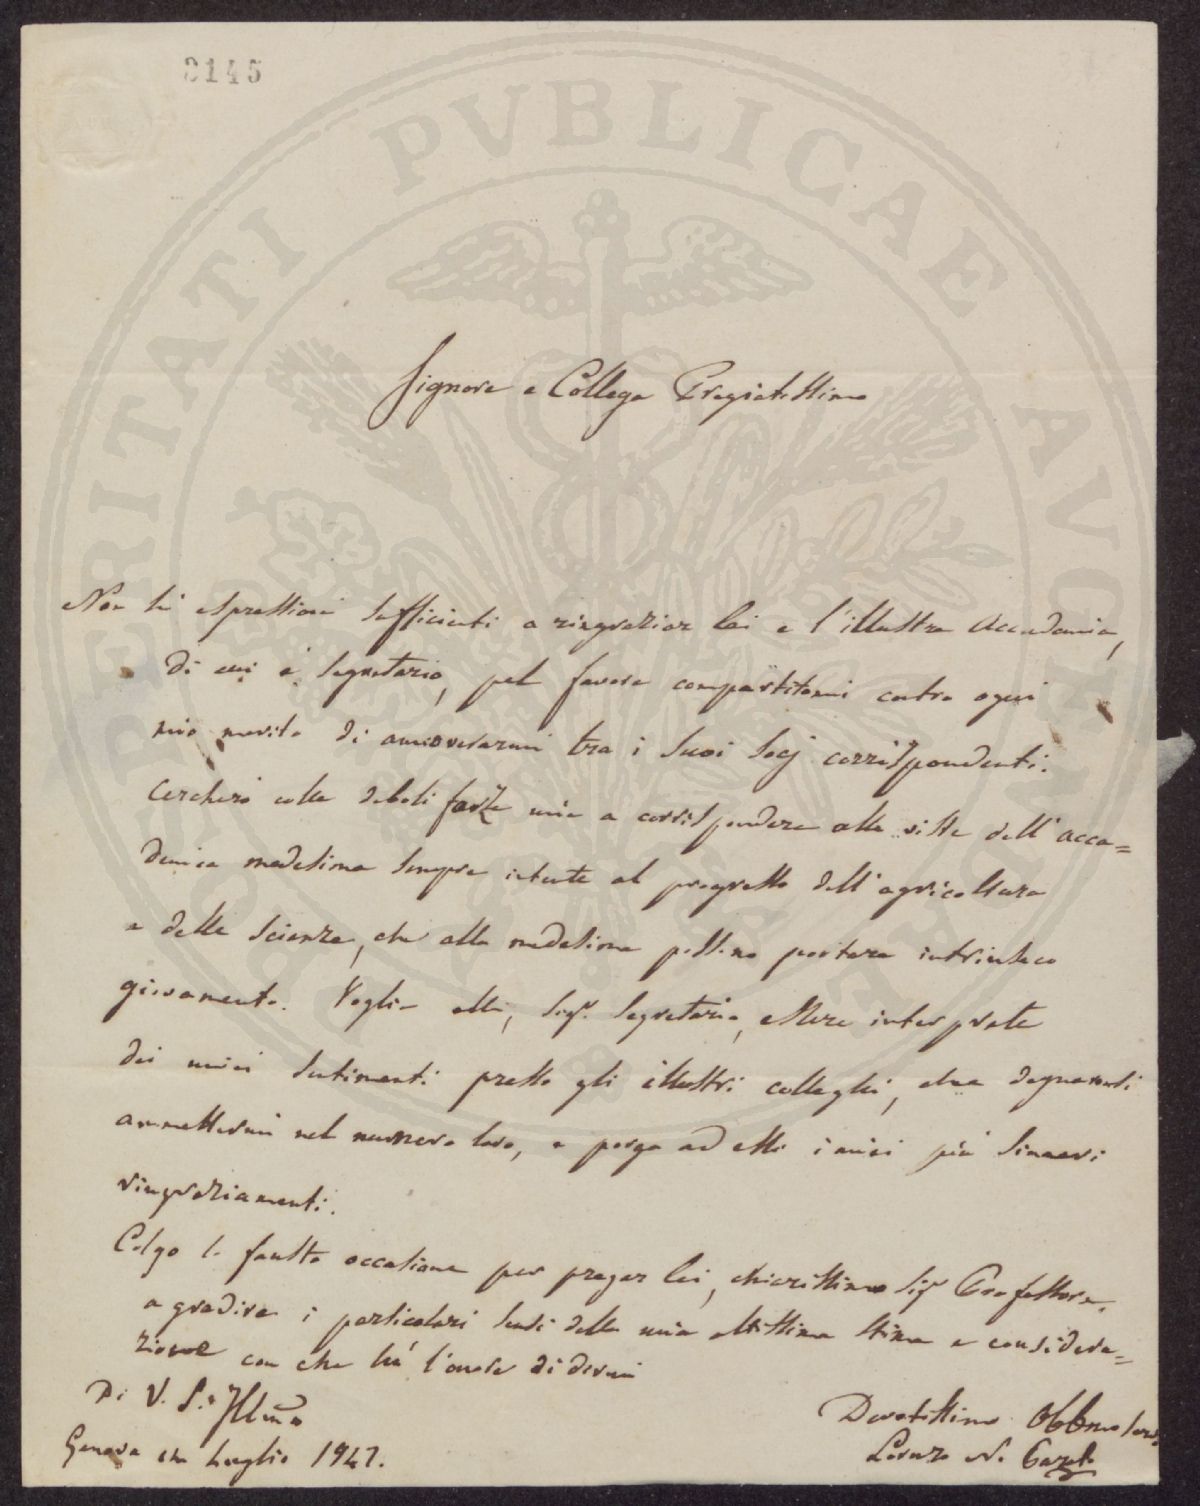 2145
PROSPERITATI PVBLICAE AVGENDAE
Signore e Collega Pregiatissimo
Non hò espressioni sufficienti a ringraziar lei e l'illustre Accademia,
di cui è Segretario, pel favore compartitomi contro ogni
mio merito di annoverarmi tra i suoi Socj corrispondenti.
Cercherò colle deboli forze mie a corrispondere alle viste dell'acca=
demica medesima sempre intente al progresso dell'agricoltura
e delle scienze, che alla medesima possono portare intrinseco
giovamento. Voglia ella, Sigr. Segretario, essere interprete
dei miei sentimenti presso gli illustri colleghi, che degnaronsi
ammettermi nel numero loro, e porga ad essi i miei più sinceri
ringraziamenti.
Colgo la fausta occasione per pregar lei, chiarissimo Sigr Professore,
a gradire i particolari sensi della mia altissima stima e considera=
zione con che hò l'onore di dirmi
Di V. S. Illma
Genova Luglio 1947.
Devotissimo Obbmo
Lorenzo N.